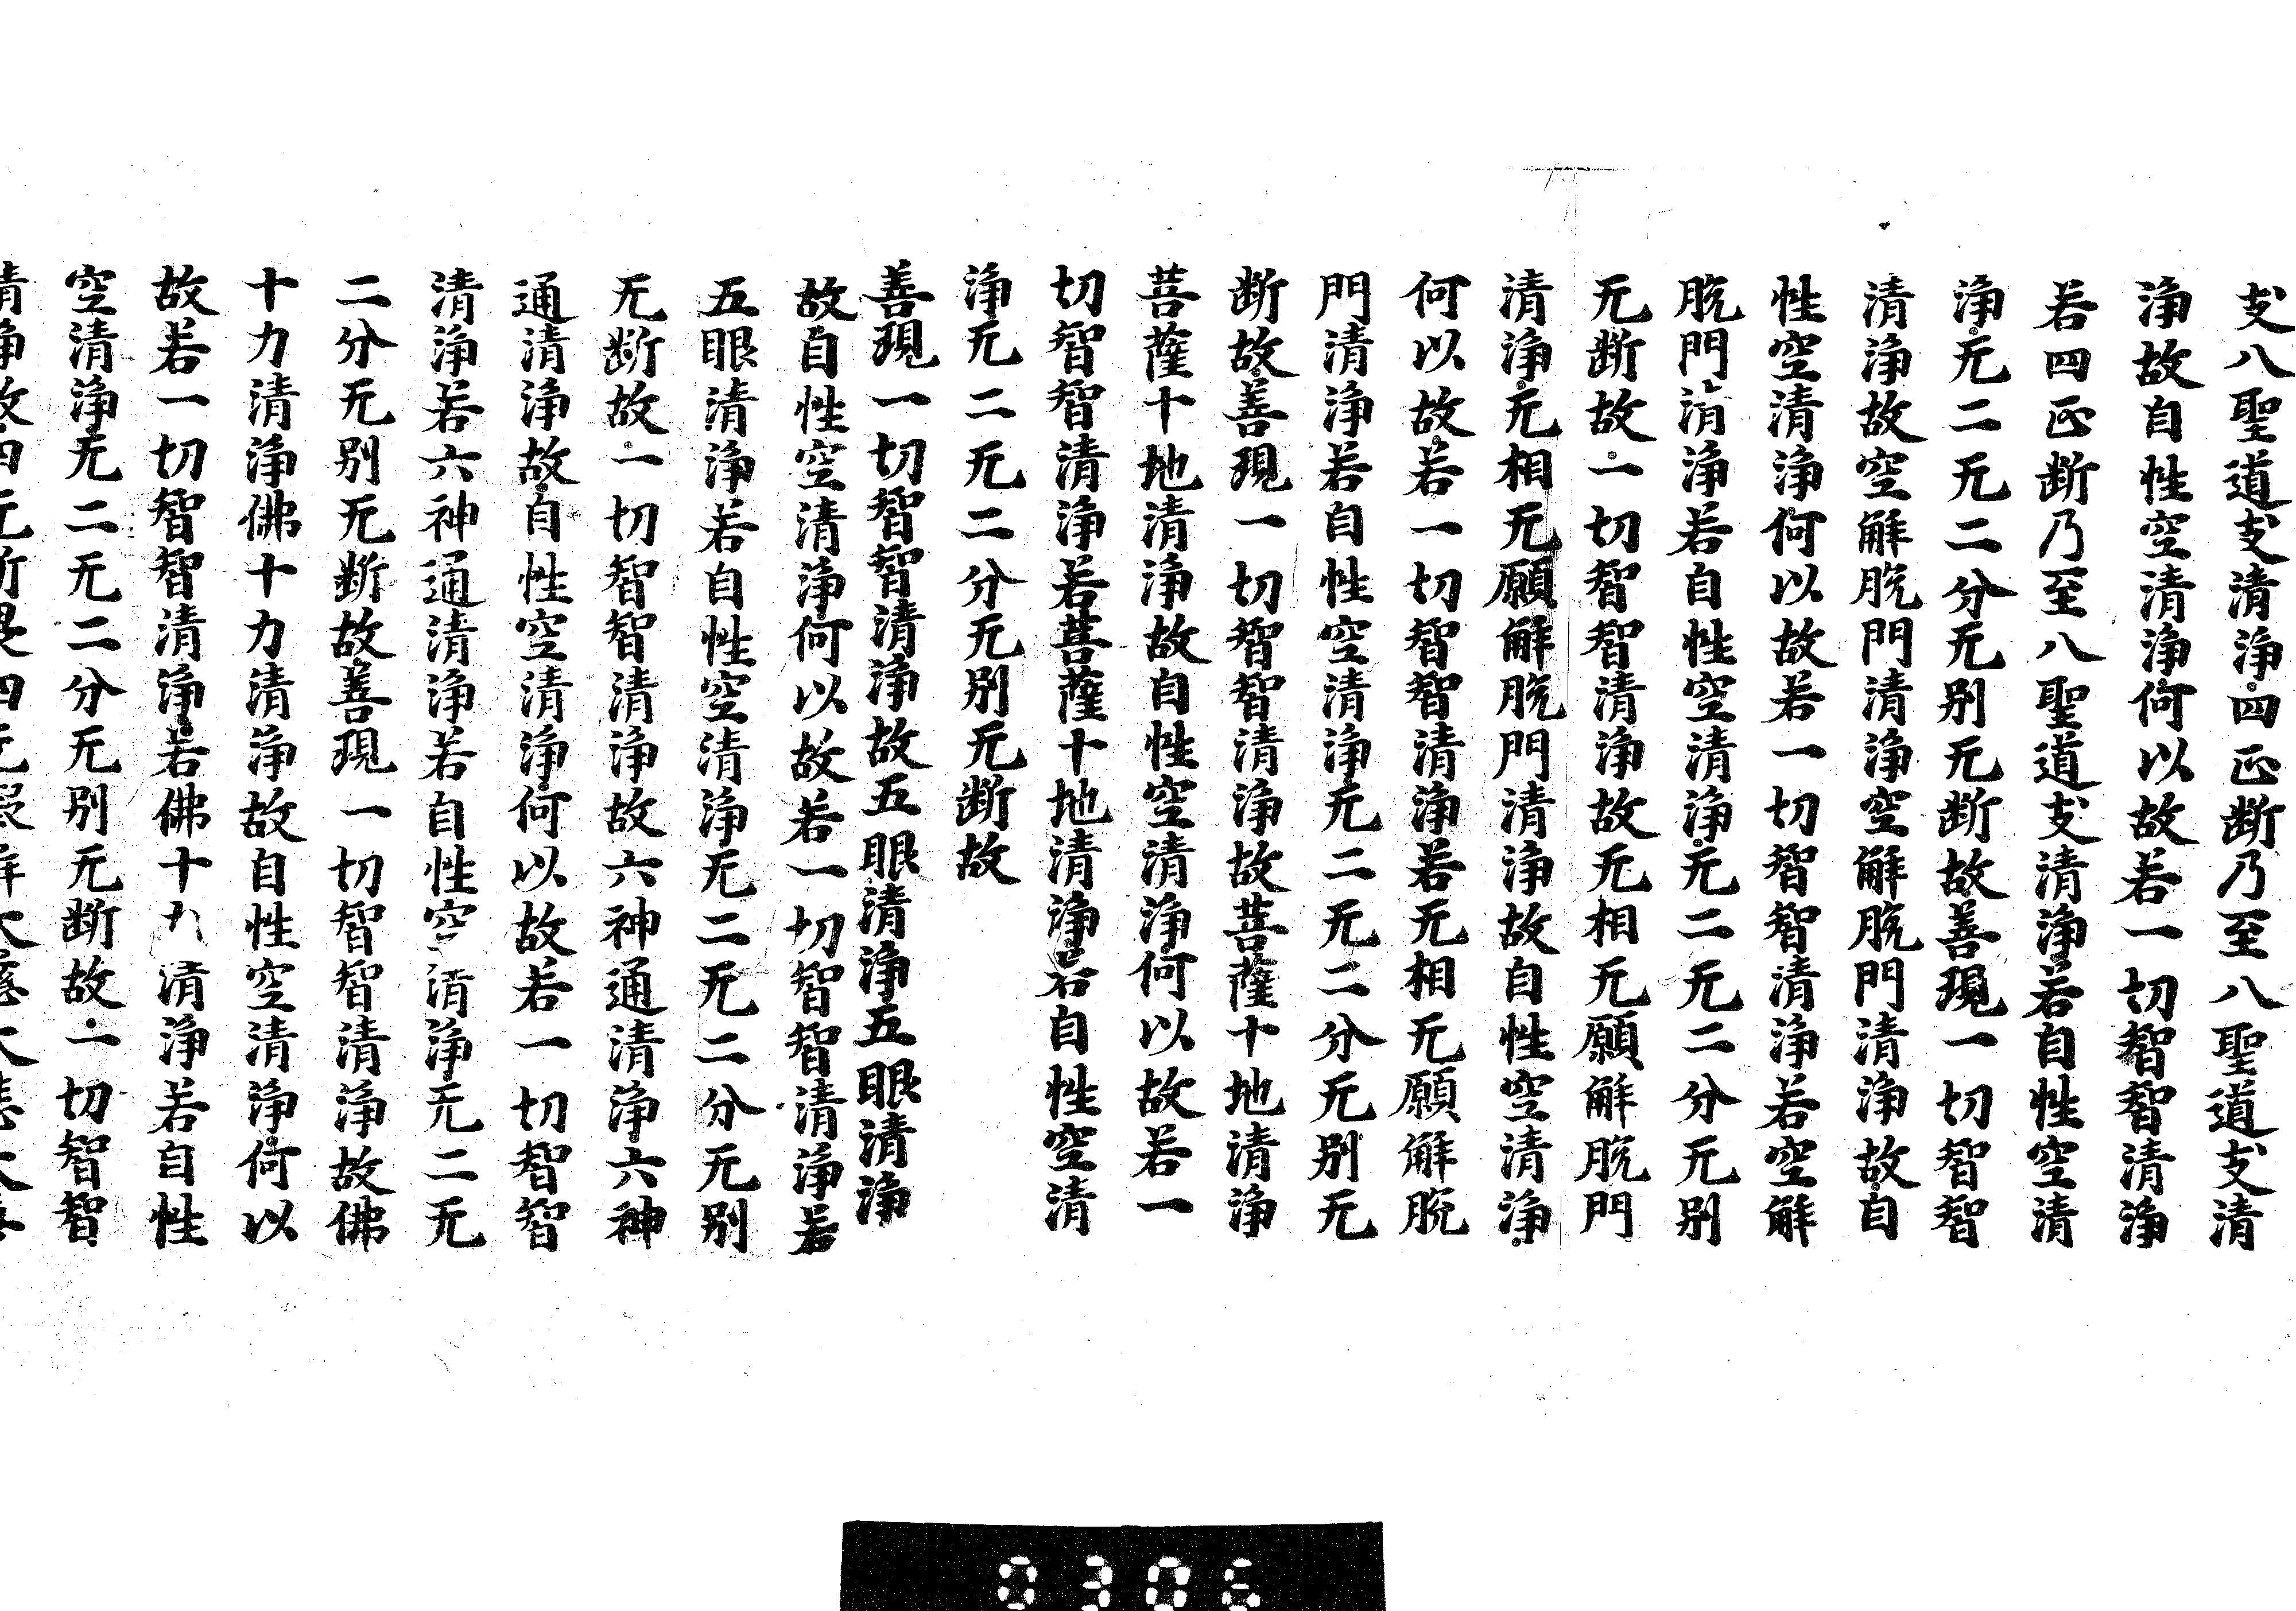 支八聖道支清淨四正断乃至八聖道支清
淨故自性空清淨何以故若一切智智清淨
若四正断乃至八聖道支清淨若自性空清
淨无二无二分无別无断故善現一切智智
清淨故空解脫門清淨空解脫門清淨故自
性空清淨何以故若一切智智清淨若空解
脫門清淨若自性空清淨无二无二分无別
无断故一切智智清淨故无相无願解脫門
清淨无相无願解脫門清淨故自性空清淨
何以故若一切智智清淨若无相无願解脫
門清淨若自性空清淨无二无二分无別无
断故善現一切智智清淨故菩薩十地清淨
菩薩十地清淨故自性空清淨何以故若一
切智智清淨若菩薩十地清淨若自性空清
淨无二无二分无別无断故
善現一切智智清淨故五眼清淨五眼清淨
故自性空清淨何以故若一切智智清淨若
五眼清淨若自性空清淨无二无二分无別
无断故一切智智清淨故六神通清淨六神
通清淨故自性空清淨何以故若一切智智
清淨若六神通清淨若自性空清淨无二无
二分无別无断故善現一切智智清淨故佛
十力清淨佛十力清淨故自性空清淨何以
故若一切智智清淨若佛十力清淨若自性
空清淨无二无二分无別无断故一切智智
清淨故四无所畏四无礙解大慈大悲大喜
0306